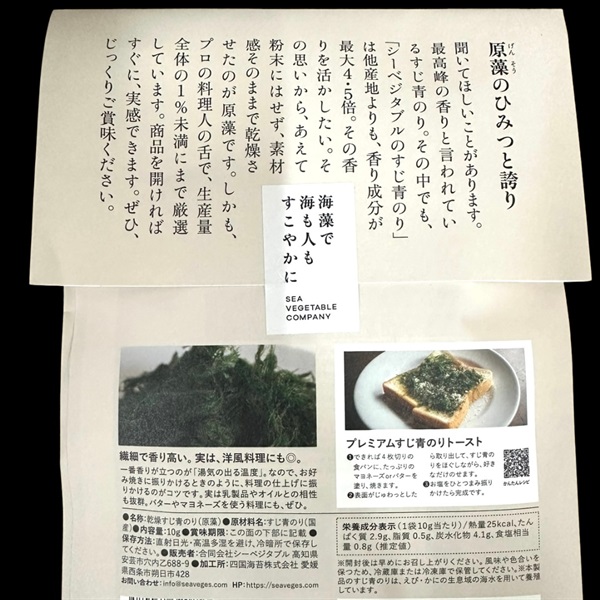 げんそう
原藻のひみつと誇り
聞いてほしいことがあります。
最高峰の香りと言われてい
るすじ青のり。その中でも、
「シーベジタブルのすじ青のり」
は他産地よりも、香り成分が
最大4・5倍。その香
りを活かしたい。そ
の思いから、あえて
粉末にはせず、素材
感そのままで乾燥さ
せたのが原藻です。しかも、
プロの料理人の舌で、生産量
全体の1%未満にまで厳選
しています。商品を開ければ
すぐに、実感できます。ぜひ、
じっくりご賞味ください。
海藻で
海も人も
すこやかに
SEA
VEGETABLE
COMPANY
繊細で香り高い。実は、洋風料理にも◎。
一番香りが立つのが「湯気の出る温度」。なので、お好
み焼きに振りかけるときのように、料理の仕上げに振
りかけるのがコツです。実は乳製品やオイルとの相性
も抜群。バターやマヨネーズを使う料理にも、ぜひ。
プレミアムすじ青のりトースト
❶できれば4枚切りの
食パンに、たっぷりの
マヨネーズorバターを
塗り、焼きます。
❷表面がじゅわっとした
ら取り出して、すじ青の
りをほぐしながら、好き
なだけのせます。
❸お塩をひとつまみ振り
かけたら完成です。
かんたんレシピ
●名称:乾燥すじ青のり(原藻) ●原材料名:すじ青のり(国
産) ●内容量:10g ●賞味期限:この面の下部に記載 ●
保存方法:直射日光・高温多湿を避け、冷暗所で保存し
てください。●販売者:合同会社シーベジタブル 高知県
安芸市穴内乙688-9 ●加工所:四国海苔株式会社 愛媛
県西条市朔日市428
お問い合わせ:info@seaveges.com HP:https://seaveges.com
栄養成分表示(1袋10g当たり)/熱量25kcal、たん
ぱく質 2.9g、脂質 0.5g、炭水化物 4.1g、食塩相当
量 0.8g(推定値)
※開封後は早めにお召し上がりください。風味や色合いを
保つため、冷蔵庫または冷凍庫で保管してください。※本製
品のすじ青のりは、えび・かにの生息域の海水を用いて養殖
しています。